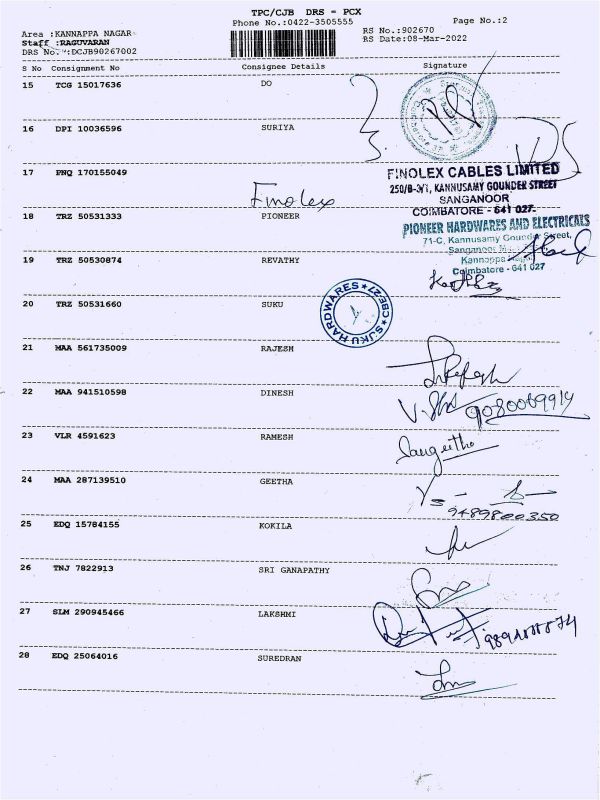 TPC/CJB DRS - PCX
Phone No.:0422-3505555
Page No.:2
Area :KANNAPPA NAGAR
RS No.:902670
Staff :RAGUVARAN
RS Date:08-Mar-2022
DRS No. :DCJB90267002
S No Consignment No Consignee Details Signature
15 TCG 15017636 DO
16 DPI 10036596 SURIYA
17 PNQ 170155049
FINOLEX CABLES LIMITED
250/B-3/1, KANNUSAMY GOUNDER STREET
SANGANOOR
Finolex
COIMBATORE - 641 027.
18 TRZ 50531333 PIONEER
PIONEER HARDWARES AND ELECTRICALS
71-C, Kannusamy Gounder Street,
Sanganoor
Kannappa
Coimbatore - 641 027
19 TRZ 50530874 REVATHY
20 TRZ 50531660 SUKU
HARDWARES
21 MAA 561735009 RAJESH
22 MAA 941510598 DINESH
9080069914
23 VLR 4591623 RAMESH
Sangeetha
24 MAA 287139510 GEETHA
9489800350
25 EDQ 15784155 KOKILA
26 TNJ 7822913 SRI GANAPATHY
27 SLM 290945466 LAKSHMI
28 EDQ 25064016 SUREDRAN